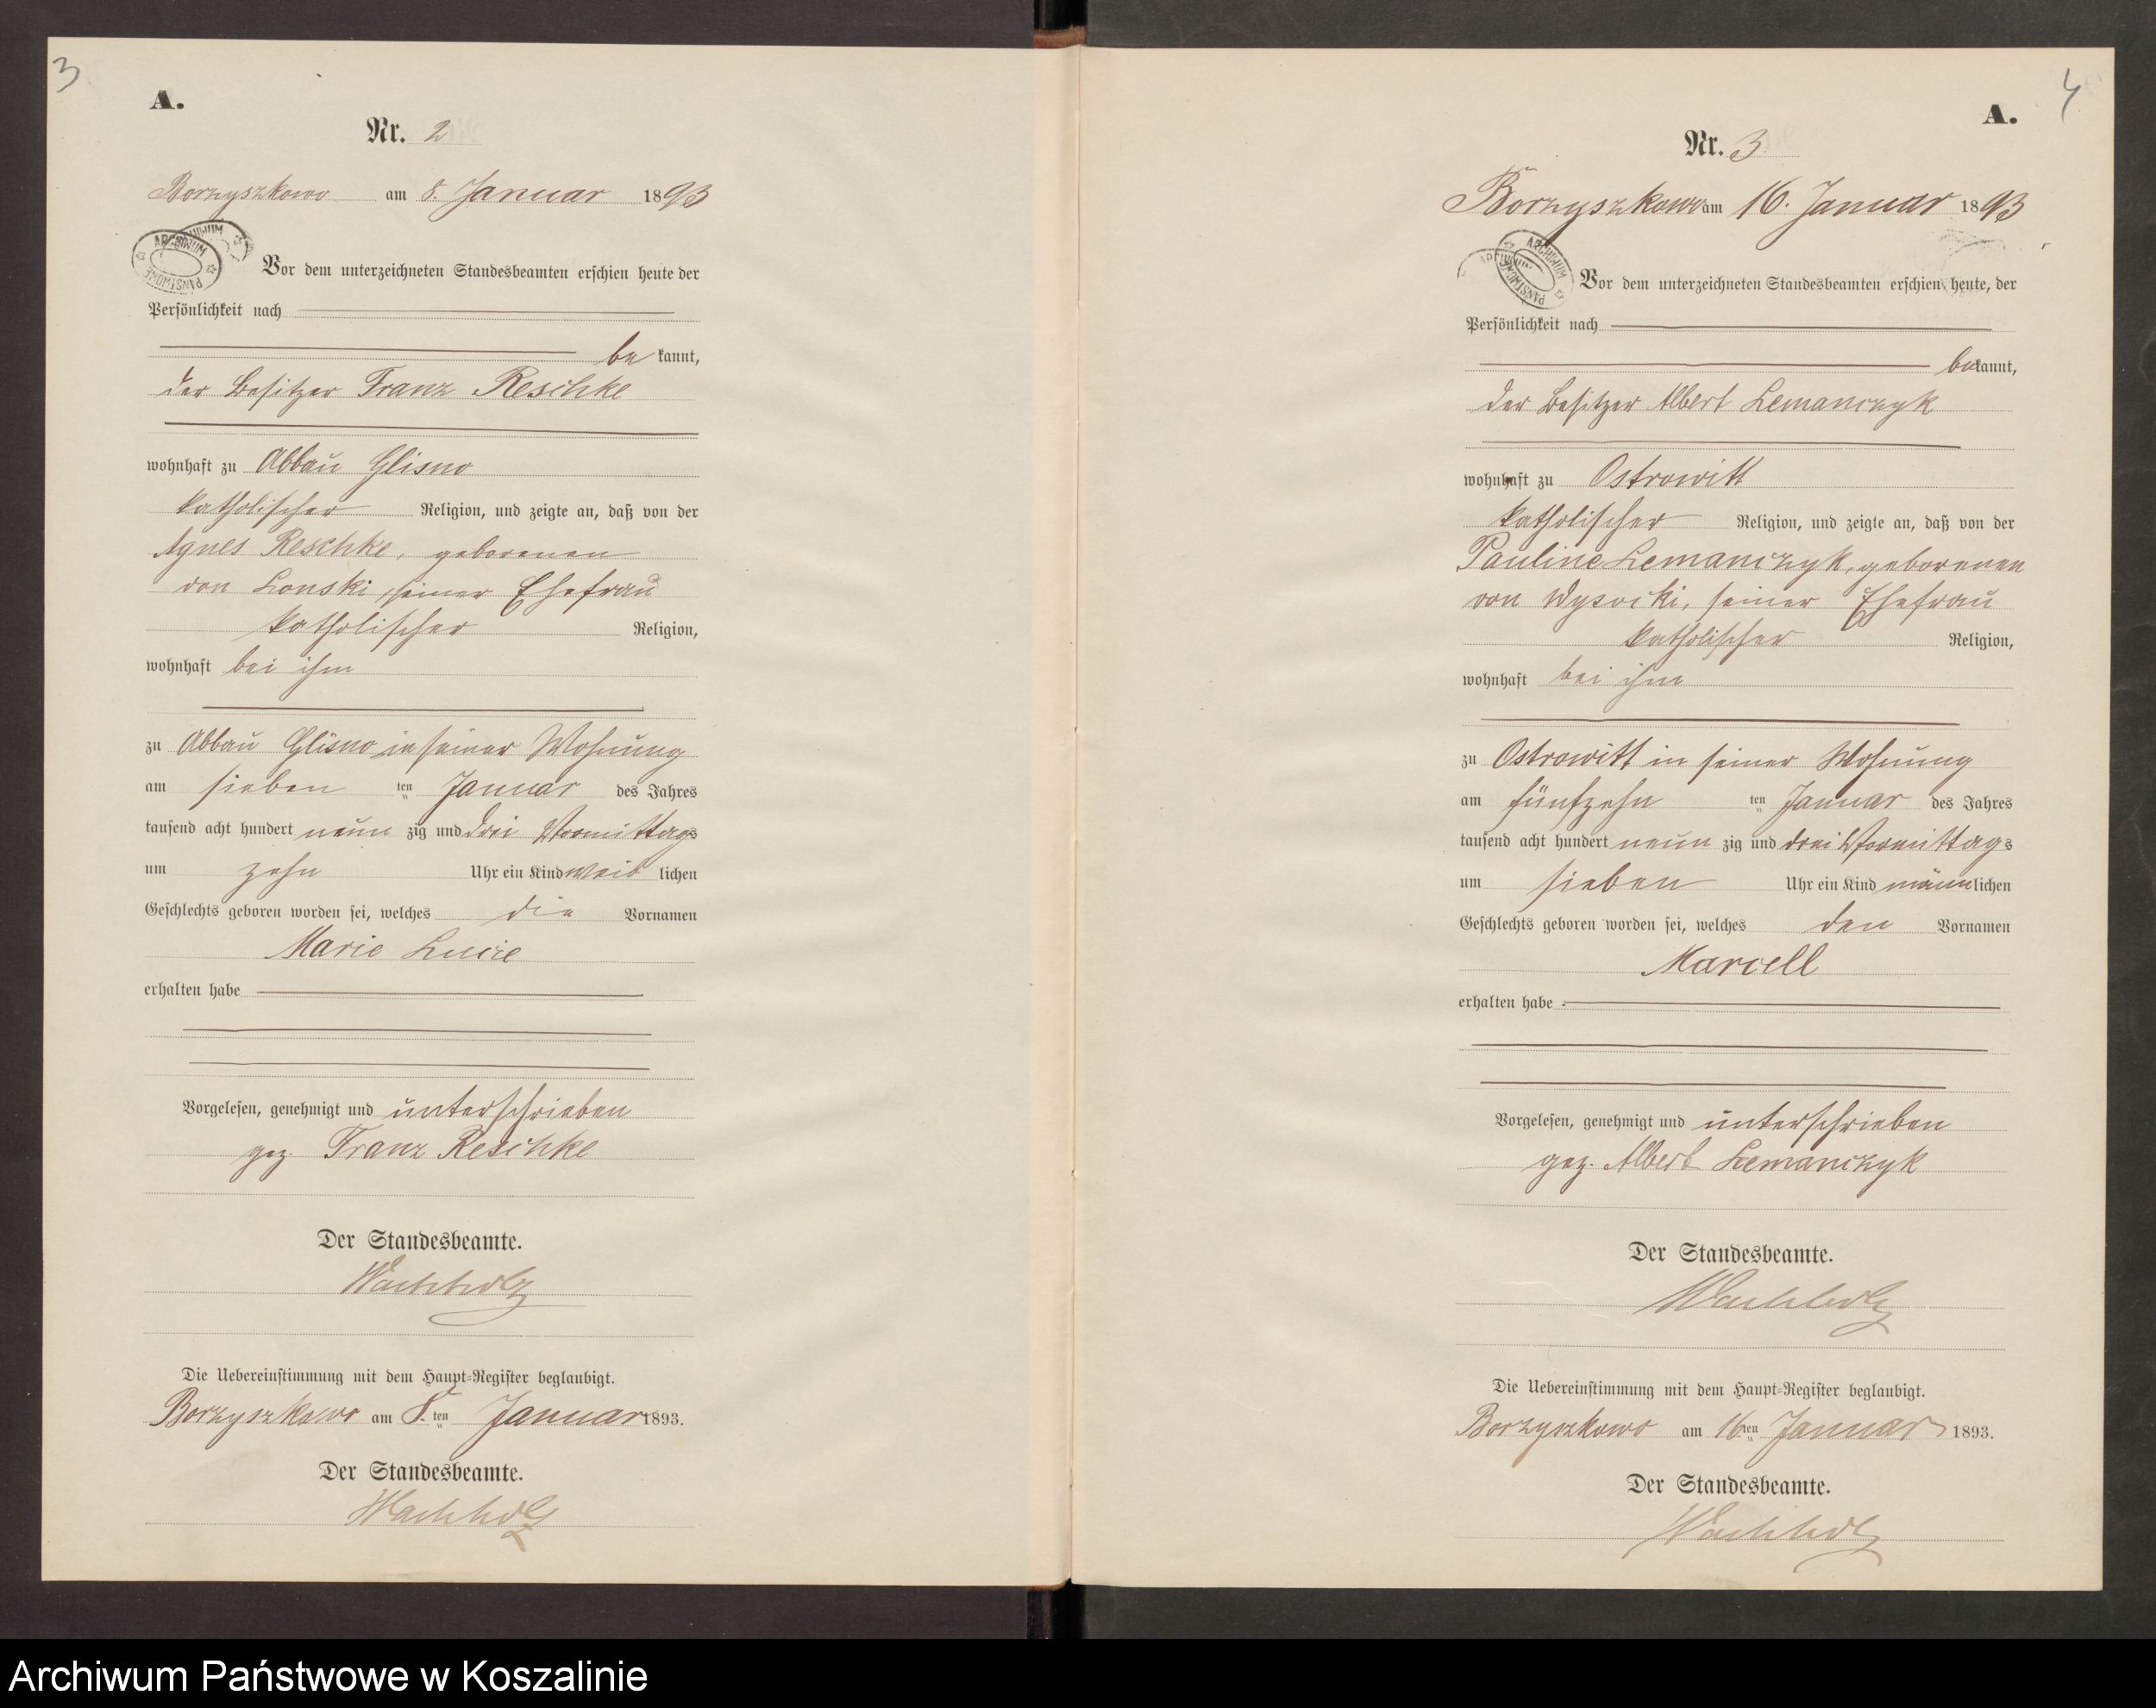 3
A.
Nr. 2
Borzyszkowo am 8. Januar 1893
ARCHIWUM PAŃSTWOWE
Vor dem unterzeichneten Standesbeamten erschien heute der
Persönlichkeit nach
be kannt,
der Besitzer Franz Reschke
wohnhaft zu Abbau Glisno
katholischer Religion, und zeigte an, daß von der
Agnes Reschke, geborenen
von Lonski, seiner Ehefrau
katholischer Religion,
wohnhaft bei ihm
zu Abbau Glisno in seiner Wohnung
am sieben ten Januar des Jahres
tausend acht hundert neun zig und drei Vormittags
um zehn Uhr ein Kind weib lichen
Geschlechts geboren worden sei, welches die Vornamen
Marie Lucie
erhalten habe
Vorgelesen, genehmigt und unterschrieben
gez. Franz Reschke
Der Standesbeamte.
Wachholz
Die Uebereinstimmung mit dem Haupt-Register beglaubigt.
Borzyszkowo am 8. ten Januar 1893.
Der Standesbeamte.
Wachholz
4
A.
Nr. 3
Borzyszkowo am 16. Januar 1893
ARCHIWUM PAŃSTWOWE
Vor dem unterzeichneten Standesbeamten erschien heute, der
Persönlichkeit nach
bekannt,
der Besitzer Albert Lemanczyk
wohnhaft zu Ostrowitt
katholischer Religion, und zeigte an, daß von der
Pauline Lemanczyk, geborenen
von Wysocki, seiner Ehefrau
katholischer Religion,
wohnhaft bei ihm
zu Ostrowitt in seiner Wohnung
am fünfzehn ten Januar des Jahres
tausend acht hundert neun zig und drei Vormittags
um sieben Uhr ein Kind männlichen
Geschlechts geboren worden sei, welches den Vornamen
Marcell
erhalten habe
Vorgelesen, genehmigt und unterschrieben
gez. Albert Lemanczyk
Der Standesbeamte.
Wachholz
Die Uebereinstimmung mit dem Haupt-Register beglaubigt.
Borzyszkowo am 16. ten Januar 1893.
Der Standesbeamte.
Wachholz
Archiwum Państwowe w Koszalinie